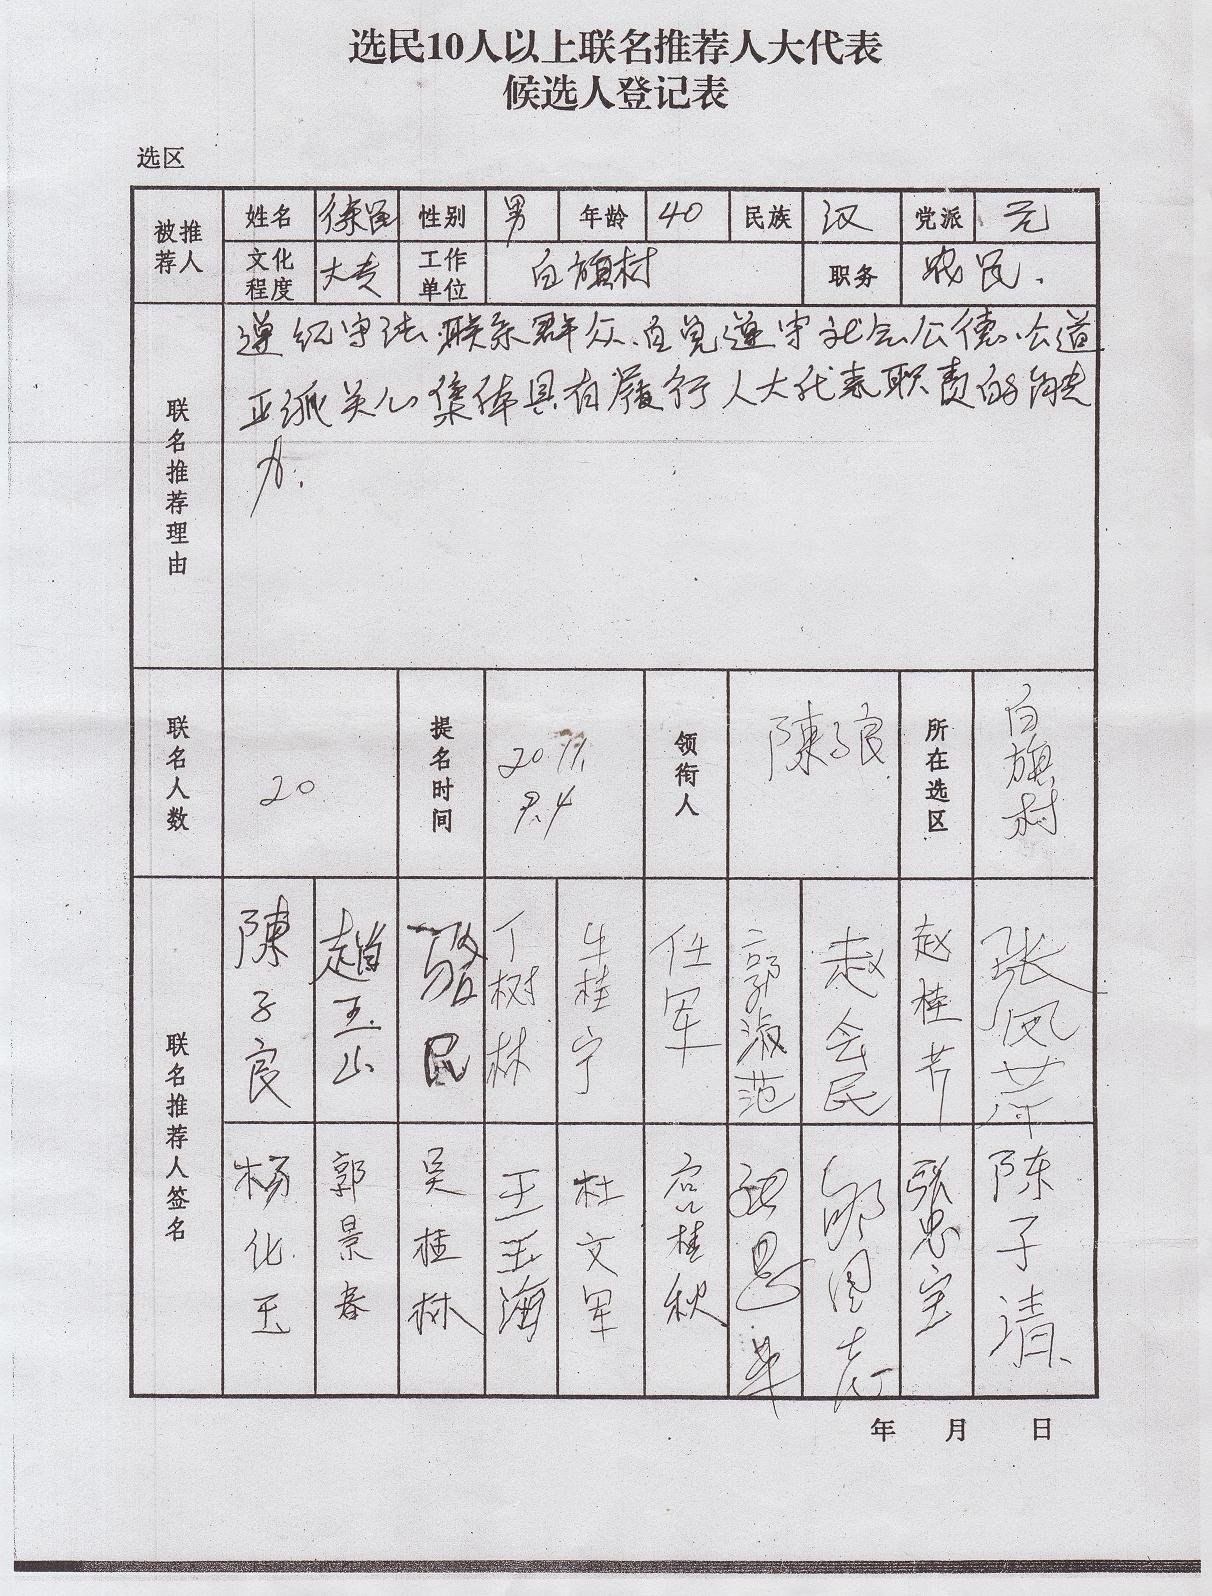 选民10人以上联名推荐人大代表
候选人登记表
选区
被推荐人 姓名 徐民 性别 男 年龄 40 民族 汉 党派 无
文化程度 大专 工作单位 白旗村 职务 农民.
联名推荐理由
遵纪守法.联系群众.自觉遵守社会公德.公道
正派关心集体具有履行人大代表职责的能
力.
联名人数 20 提名时间 2011. 9.4 领衔人 陳子良 所在选区 白旗村
联名推荐人签名
陳子良 趙玉山 民 丁树林 牛桂宁 任军 郭淑范 赵会民 赵桂芹 张凤芹
杨化玉 郭景春 吴桂林 王玉海 杜文军 桂秋 张忠宝 陈子清
年 月 日